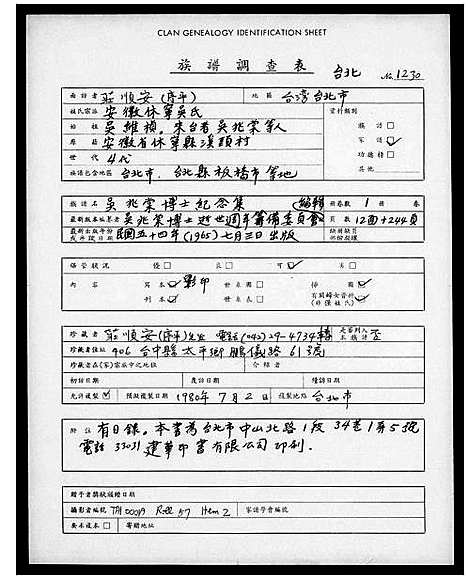 CLAN GENEALOGY IDENTIFICATION SHEET
族譜調查表 台北 No. 1230
面訪者 莊順安(序平) 地區 台灣台北市
姓氏宗派 安徽休寧吳氏 資料類別
始祖 吳維禎。來台者吳兆棠等人 族譜 □
原籍 安徽省休寧縣溪頭村 家譜 ☑
世代 4代 功德積 □
族譜包含地區 台北市、台北縣板橋市等地 其他
族譜名 吳兆棠博士紀念集 (編輯) 冊卷數 1 冊 卷
最新版本編纂者 吳兆棠博士逝世週年籌備委員會 頁數 12面+244頁
最新出版年份或完譜日期 民國五十四年(1965)七月三日出版 缺冊缺頁
保管狀況 優 □ 良 □ 可 ☑ 劣 □
內容 寫本 影印 世系圖 □ 傳 ☑
刊本 世系表 □ 有關婦女資料 (非僅姓氏)
珍藏者 莊順安(序平)先生 電話(042)29-4734轉 是否列入本族譜 否
珍藏者住址 406 台中縣太平鄉鵬儀路61號
珍藏者在(家)宗族中之地位 介紹者
初訪日期 复訪日期 續訪日期
允許複製 ☑ 預擬複製日期 1980年7月2日 複製地點 台北市
附註 有目錄。本書為台北市中山北路1段34巷1弄5號
電話 33031 建華印書有限公司印刷.
贈予者獎狀頒贈日期
攝影者編號 TH 00019 Roll 57 Item 2 家譜學會編號
要求複本 □ 寄贈地址